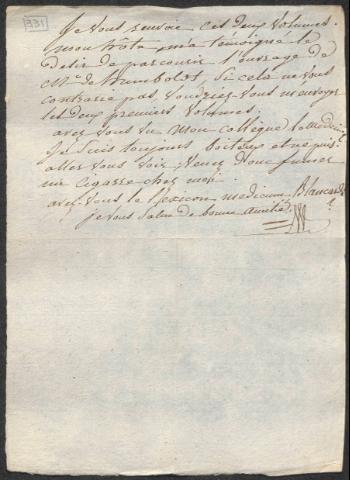 331
Je vous renvoie ces deux volumes.
mon hôte m'a témoigné le
desir de parcourir l'ouvrage de
Mr. de humboldt, si cela ne vous
contrarie pas voudriez vous m'envoyer
les deux premiers volumes.
avez vous vu mon collègue le médecin
Je suis toujours boiteux et ne puis
aller vous voir, venez donc fumer
un cigarre chez moi.
avez vous le lexicon medicum Blancardi
je vous salue de bonne amitié.